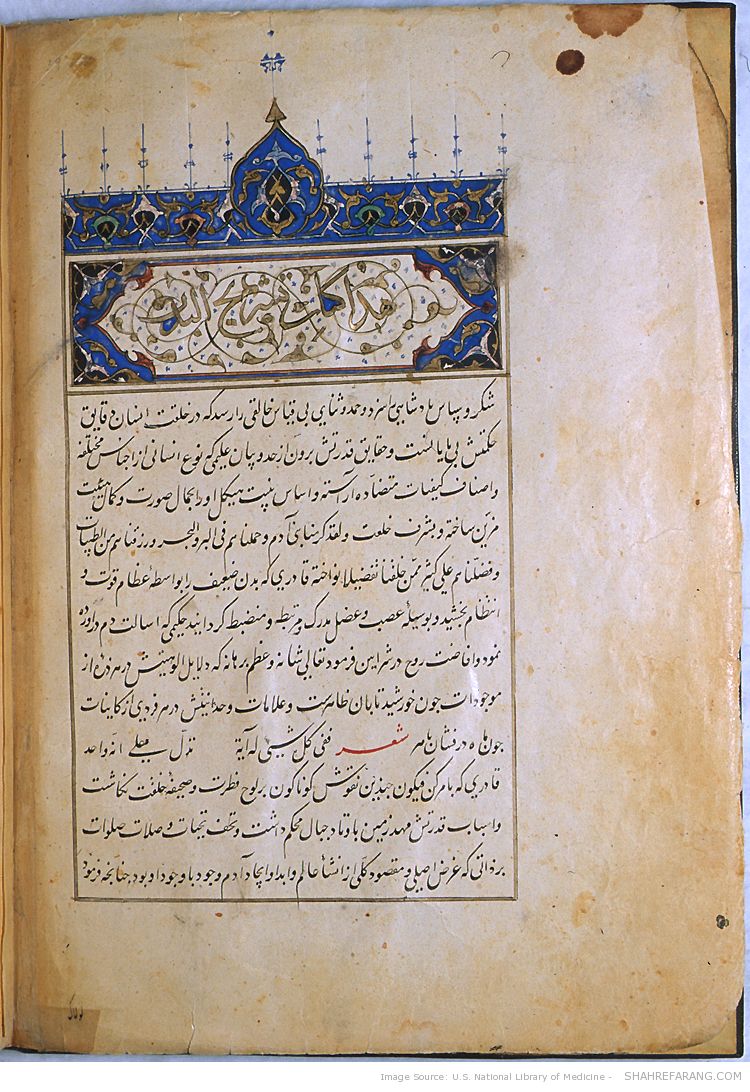 هذا کتاب تشریح البدن
شکر و سپاس پادشاهی را سزد و حمد و ثنای بی قیاس خالقی را رسد که در خلقت انسان دقایق
حکمتش بی پایانست و حقایق قدرتش برون از حد و بیان علیمی که نوع انسانی از اجناس مختلفه
و اصناف کیفیات متضاده آراسته و اساس بنیت هیکل او را بجمال صورت و کمال هیئت
مزین ساخته و بشرف خلعت و لقد کرمنا بنی آدم و حملناهم فی البر و البحر و رزقناهم من الطیبات
و فضلناهم علی کثیر ممن خلقنا تفضیلا نواخته قادری که بدن ضعیف را بواسطهٔ عظام قوت و
انتظام بخشید و بوسیلهٔ عصب و عضل مدرک و مرتبطه و منضبط کردانید حکیمی که اسالت دم در اورده
نمود و افاضت روح در شراین فرمود تعالی شانه و عظم برهانه که دلایل الوهیتش در هر ذرهٔ از
موجودات جون خورشید تابان ظاهرست و علامات وحدانیتش در هر فردی از کاینات
جون ماه درفشان باهر شعر ففی کل شیئی له آیة تدل علی انه واحد
قادری که بامر کن فیکون جندین نقوش کوناکون بر لوح فطرت و صحیفهٔ خلقت نکاشت
و اسباب قدرتش مهد زمین باوتاد جبال محکم داشت و تحف تحیات و صلات صلوات
بر ذاتی که غرض اصلی و مقصود کلی از انشأ عالم و ابداء و ایجاد آدم وجود با وجود او بود جنانجه فرمود
Image Source: U.S. National Library of Medicine - SHAHREFARANG.COM